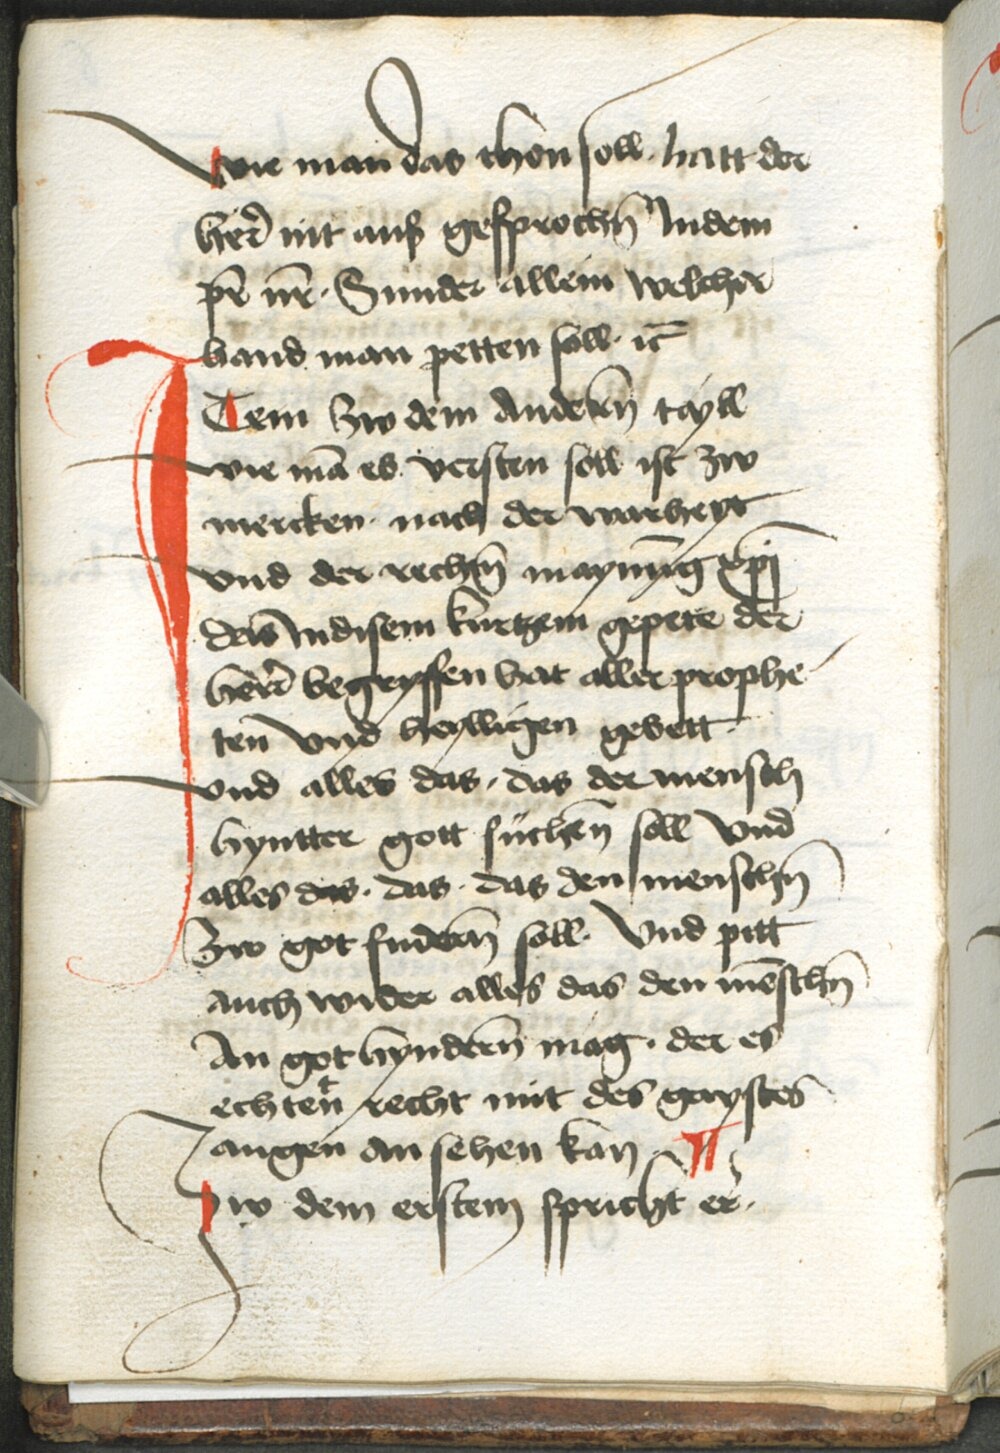 Wie man das thon soll · hatt der
her̃ nit auß gesprochñ Jndem
pr̃ nr̃ · Sunder allein welcher
hand man petten soll · ꝛc̃
JTem Zw dem Anderñ tayll
wie mā es versten soll ist zw
mercken · nach der warheyt
vnd der rechñ maynūg xp̄i
das Jndisem kurtzem gepete der
her̃ begryffen hat aller prophe
ten vnd heylligen gebett ·
vnd alles das · das der mensch
hyntter gott suchen̄ soll vnd
alles das · das · das den menschñ
Zw got fudern̄ soll · Vnd pitt
auch wider alles das den mēschñ
An got hyndern̄ mag · der es
echten̄ recht mit des gaystes
augen an sehen kan ·
Zw dem erstem spricht er ·